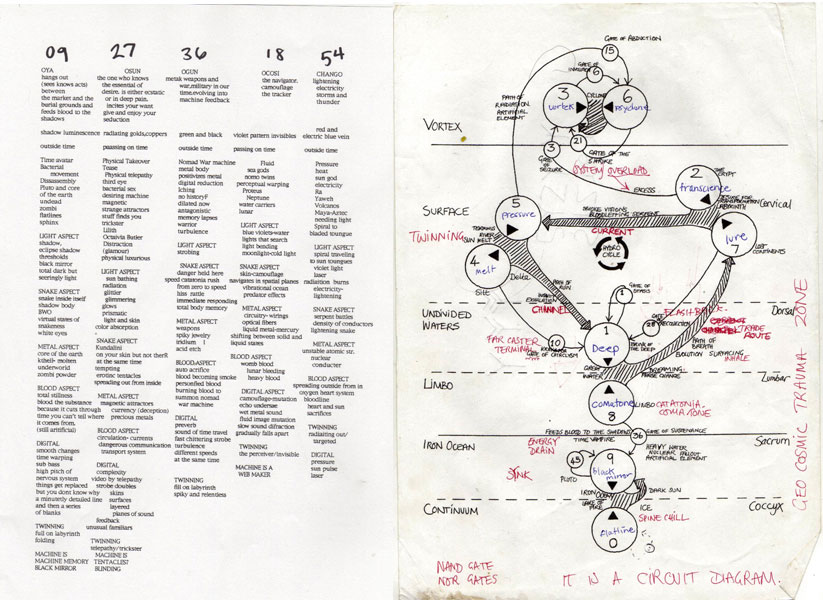 09
OYA
hangs out
(sees knows acts)
between
the market and the
burial grounds and
feeds blood to the
shadows
shadow luminescence
outside time
Time avatar
Bacterial
Movement
Disassembly
Pluto and core
of the earth
undead
zombi
flatlines
sphinx
LIGHT ASPECT
shadow,
eclipse shadow
thresholds
black mirror
total dark but
seeringly light
SNAKE ASPECT
snake inside itself
shadow body
BWO
virtual states of
snakeness
white eyes
METAL ASPECT
core of the earth
kthell- molten
underworld
zombi powder
BLOOD ASPECT
total stillness
blood the substance
because it cuts through
time you can't tell where
it comes from,
(still artificial)
DIGITAL
smooth changes
time warping
sub bass
high pitch of
nervous system
things get replaced
but you dont know why
a minutely detailed line
and then a series
of blanks
TWINNING
full on labyrinth
folding
MACHINE IS
MACHINE MEMORY
BLACK MIRROR
27
OSUN
the one who knows
the essential of
desire. is either ecstatic
or in deep pain.
incites your want
give and enjoy your
seduction
radiating golds,coppers
paassing on time
Physical Takeover
Tease
Physical telepathy
third eye
bacterial sex
desiring machine
magnetic
strange attractors
stuff finds you
trickster
Lilith
Octavia Butler
Distraction
(glamour)
physical luxurious
LIGHT ASPECT
sun bathing
radiation
glitter
glimmering
glows
prismatic
light and skin
color absorption
SNAKE ASPECT
Kundalini
on your skin but not therR
at the same time
tempting
erotic tentacles
spreading out from inside
METAL ASPECT
magnetic attractors
currency (deception)
precious metals
BLOOD ASPECT
circulation- currents
dangerous communication
transport system
DIGITAL
complexity
video by telepathy
strobe doubles
skins
surfaces
layered
planes of sound
feedback
unusual familiars
TWINNING
telepathy/trickster
MACHINE IS
TENTACLES?
BLINDING
36
OGUN
metak weapons and
war,military in our
time.evolving into
machine feedback
green and black
outside time
Nomad War machine
metal body
positivizes metal
digital reduction
Iching
no history?
dilated now
antagonistic
memory lapses
warrior
turbulence
LIGHT ASPECT
strobing
SNAKE ASPECT
danger held here
speed catatonia rush
from zero to speed
hiss rattle
immediate responding
total body memory
METAL ASPECT
weapons
spiky jewelry
iridium
acid etch
BLOODASPECT
auto acrifice
blood becoming smoke
personified blood
burning blood to
summon nomad
war machine
DIGITAL
preverb
sound of time travel
fast chittering strobe
turbulence
different speeds
at the same time
TWINNING
full on labyrinth
spiky and relentless
18
OCOSI
the navigator.
camouflage
the tracker
violet pattern invisibles
passing on time
Fluid
sea gods
nomo twins
perceptual warping
Proteus
Neptune
water carriers
lunar
LIGHT ASPECT
blue violets-water
lights that search
light bending
moonlight-cold light
SNAKE ASPECT
skin-camouflage
navigates in spatial planes
vibrational ocean
predator effects
METAL ASPECT
circuitry-wirings
optical fibers
liquid metal-mercury
shifting between solid and
liquid states
BLOOD ASPECT
womb blood
lunar bleeding
heavy blood
DIGITAL ASPECT
camouflage-mutation
echo undersae
wet metal sound
fluid image mutation
slow sound difraction
gradually falls apart
TWINNING
the perceiver/invisible
MACHINE IS A
WEB MAKER
54
CHANGO
lightening
electricity
storms and
thunder
red and
electric blue vein
outside time
Pressure
heat
sun god
electricity
Ra
Yaweh
Volcanos
Maya-Aztec
needling light
Spiral to
bladed toungue
LIGHT ASPECT
spiral traveling
to sun toungues
violet light
laser
radiation burns
electricity-
lightening
SNAKE ASPECT
serpent battles
density of conductors
lightening snake
METAL ASPECT
unstable atomic str.
nuclear
conducter
BLOOD ASPECT
spreading outside from in
oxygen heart system
bloodline
heart and sun
sacrifices
TWINNING
radiating out/
targeted
DIGITAL
pressure
sun pulse
laser
GATE OF ABDUCTION
15
GATE OF
6
PATH OF
RADIATION.
ARTIFICIAL
ELEMENT
3
vortex
CYCLONE
6
psyclone
VORTEX
3
GATE OF
SEIZURE
21
GATE OF THE
SYSTEM OVERLOAD
EXCESS
2
THE
CRYPT
transcience
LABYRINTH
Cervical
SURFACE
5
pressure
CURRENT
TWINNING
SUN MELT
HYDRO
CYCLE
lure
7
LOST
CONTINENTS
4
melt
Silt
Delta
PATH OF
CHANNEL
1
GATE OF
FLASHBACK
Dorsal
UNDIVIDED
WATERS
1
Deep
28
TRADE
ROUTE
FAR CASTER
TERMINAL
10
GATE OF CATACLISM
OF THE DEEP
PATH OF
BREATH
EVOLUTION SURFACING
INHALE
GREAT
WATER
DREAMING
PHASE CHANGE
Lumbar
LIMBO
comatone
8
LIMBO
CATATONIA
COMA ZONE
FEEDS BLOOD TO THE SHADOWS
TIME VAMPIRE
36
GATE OF SUSTENANCE
Sacrum
IRON OCEAN
ENERGY
DRAIN
HEAVY WATER
NUCLEAR FALLOUT
ARTIFICIAL ELEMENT
SINK
45
PLUTO
9
black
mirror
IRON
OCEAN
DARK SUN
LAKE OF
FIRE
ICE
CONTINUUM
Coccyx
SPINE CHILL
flatline
0
NAND GATE
NOR GATES
IT IN A CIRCUIT DIAGRAM.
GEO COSMIC TRAUMA ZONE